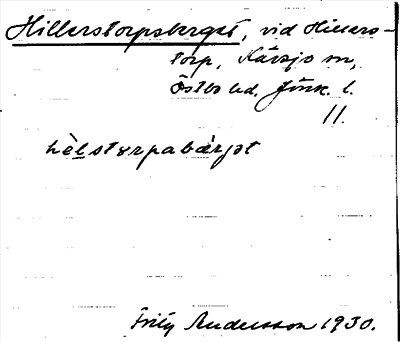 Hillerstorpsberget, vid Hillers-
torp, Kävsjö sn,
Östbo hd. Jönk. l.
11.
hèlstɤrpabárjət
Fritz Andersson 1930.